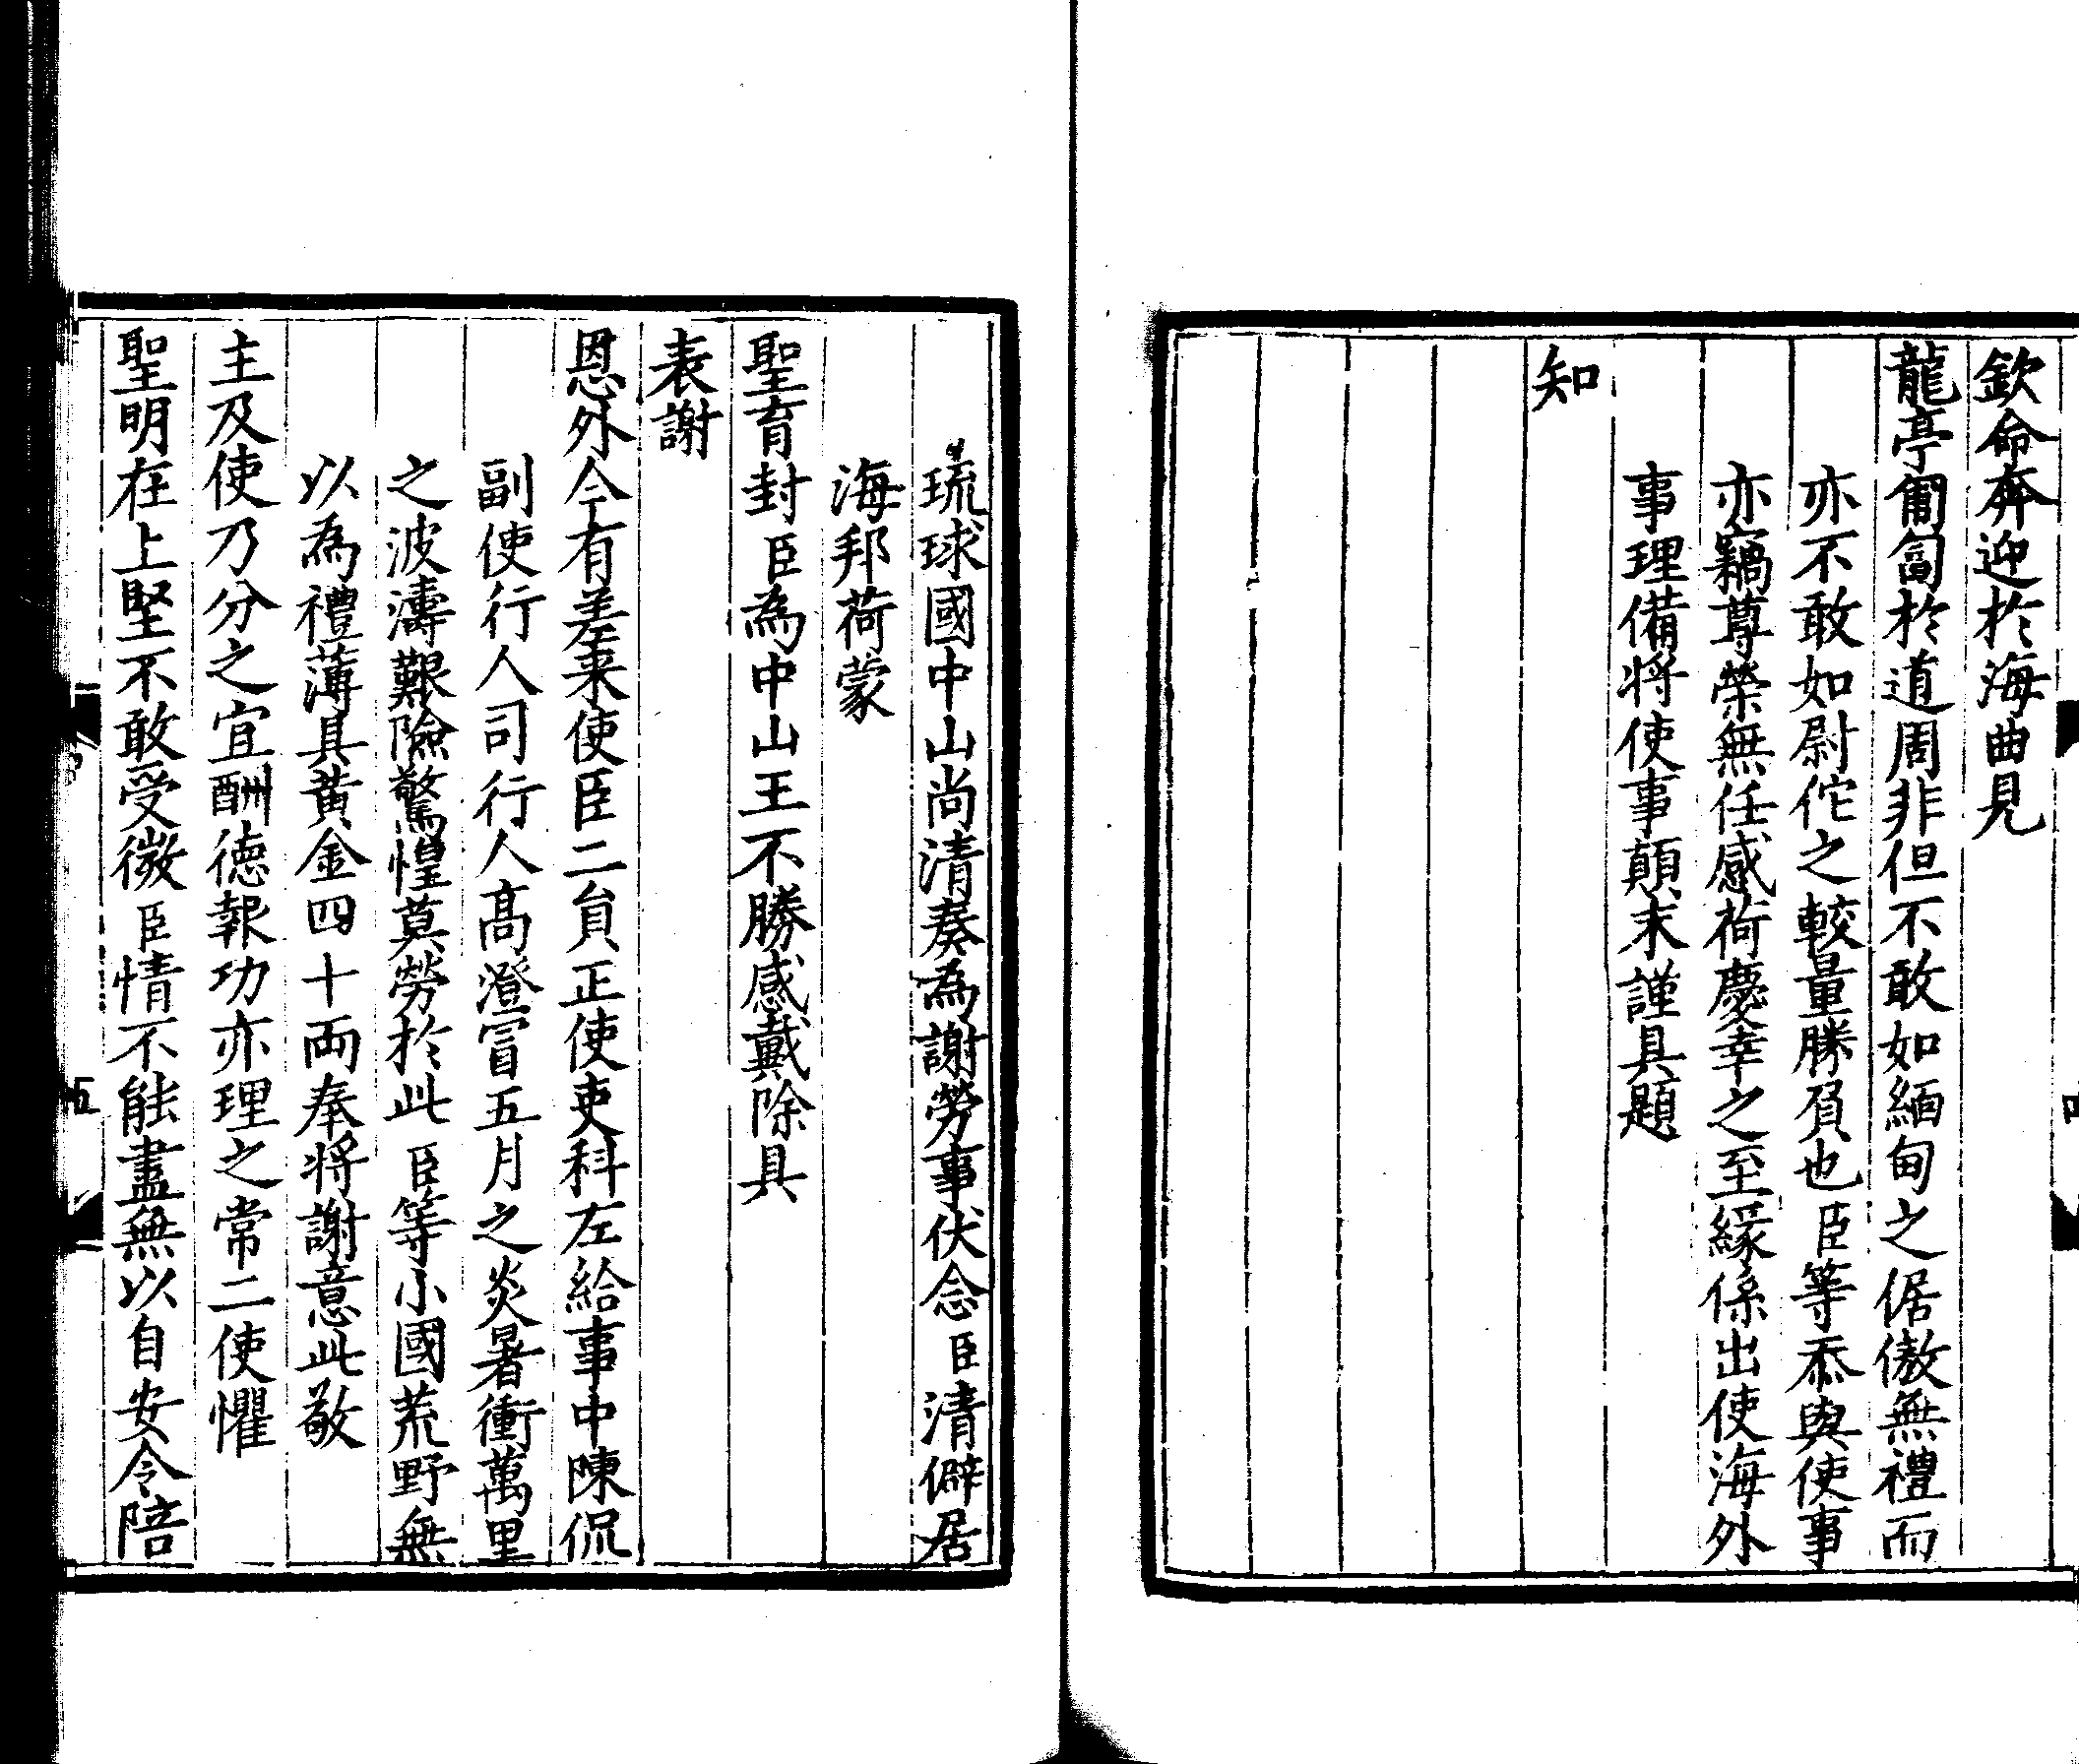 欽命奔迎於海曲見
龍亭匍匐於道周非但不敢如緬甸之倨傲無禮而
亦不敢如尉佗之較量勝負也臣等忝與使事
亦竊尊榮無任感荷慶幸之至緣係出使海外
事理備將使事顛末謹具題
知
琉球國中山尚清奏為謝勞事伏念臣清僻居
海邦荷蒙
聖育封臣為中山王不勝感戴除具
表謝
恩外今有差来使臣二貟正使吏科左給事中陳侃
副使行人司行人高澄冒五月之炎暑衝萬里
之波濤艱險驚惶莫勞於此臣等小國荒野無
以為禮薄具黄金四十兩奉將謝意此敬
主及使乃分之宜酬德報功亦理之常二使懼
聖明在上堅不敢受微臣情不能盡無以自安令陪